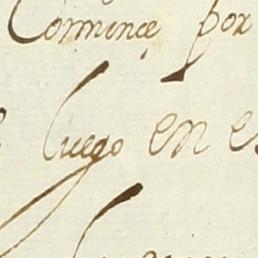 Comince por
luego en es